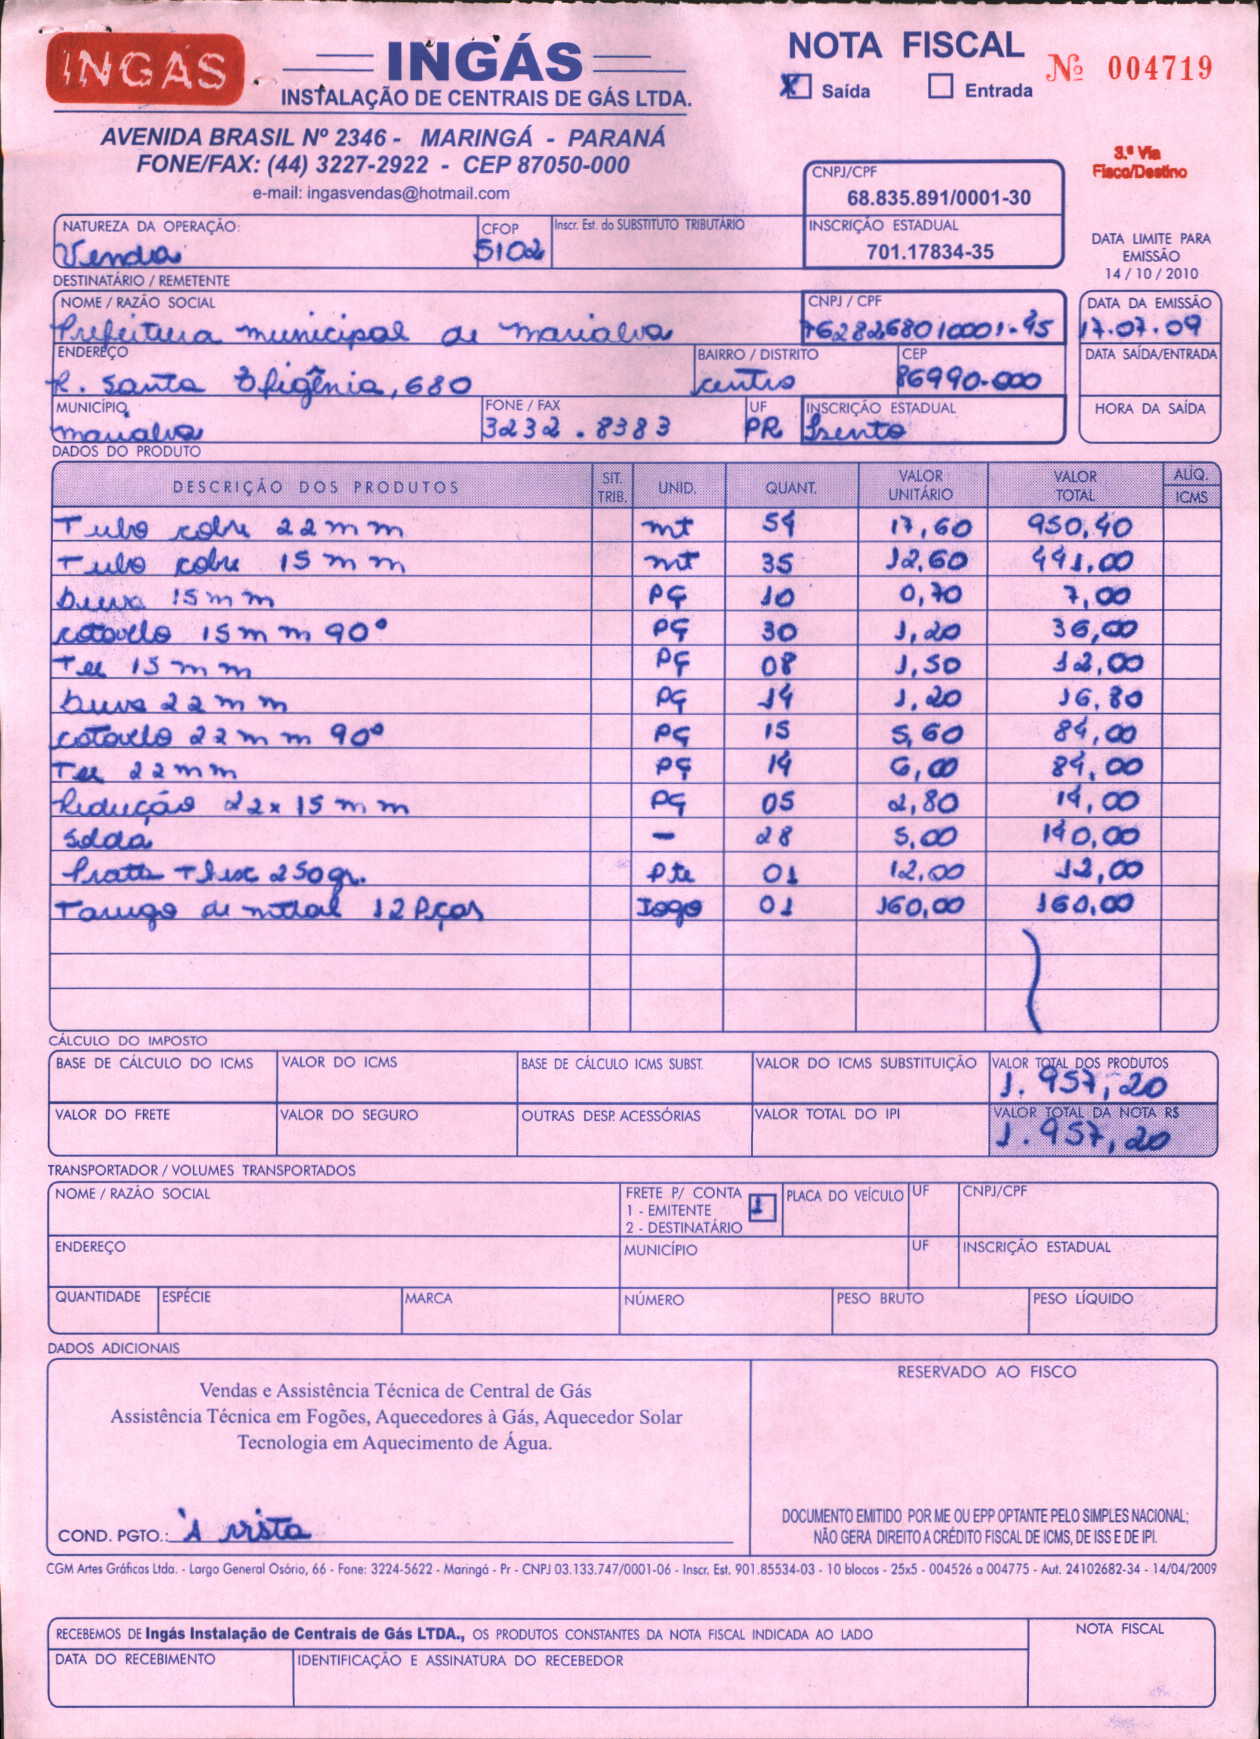 INGÁS
INGÁS
INSTALAÇÃO DE CENTRAIS DE GÁS LTDA.
AVENIDA BRASIL Nº 2346 - MARINGÁ - PARANÁ
FONE/FAX: (44) 3227-2922 - CEP 87050-000
e-mail: ingasvendas@hotmail.com
NOTA FISCAL
Nº 004719
X Saída Entrada
3.ª Via
Fisco/Destino
CNPJ/CPF
68.835.891/0001-30
NATUREZA DA OPERAÇÃO: CFOP Inscr. Est. do SUBSTITUTO TRIBUTÁRIO INSCRIÇÃO ESTADUAL
Venda 5102 701.17834-35
DATA LIMITE PARA
EMISSÃO
14 / 10 / 2010
DESTINATÁRIO / REMETENTE
NOME / RAZÃO SOCIAL CNPJ / CPF DATA DA EMISSÃO
Prefeitura municipal de marialva 7628268010001-45 17.07.09
ENDEREÇO BAIRRO / DISTRITO CEP DATA SAÍDA/ENTRADA
R. Santa Efigênia, 680 centro 86990-000
MUNICÍPIO FONE / FAX UF INSCRIÇÃO ESTADUAL HORA DA SAÍDA
marialva 3232.8383 PR Isento
DADOS DO PRODUTO
DESCRIÇÃO DOS PRODUTOS SIT. TRIB. UNID. QUANT. VALOR UNITÁRIO VALOR TOTAL ALÍQ. ICMS
Tubo cobre 22 mm mt 54 17,60 950,40
Tubo cobre 15 mm mt 35 12,60 441,00
Luva 15 mm PÇ 10 0,70 7,00
cotovelo 15 mm 90º PÇ 30 1,20 36,00
Tee 15 mm PÇ 08 1,50 12,00
Luva 22 mm PÇ 14 1,20 16,80
cotovelo 22 mm 90º PÇ 15 5,60 84,00
Tee 22 mm PÇ 14 6,00 84,00
Redução 22x15 mm PÇ 05 2,80 14,00
Solda - 28 5,00 140,00
250 gr. Pte 01 12,00 12,00
Tarugo de metal 12 Pças Jogo 01 160,00 160,00
CÁLCULO DO IMPOSTO
BASE DE CÁLCULO DO ICMS VALOR DO ICMS BASE DE CÁLCULO ICMS SUBST. VALOR DO ICMS SUBSTITUIÇÃO VALOR TOTAL DOS PRODUTOS
1.957,20
VALOR DO FRETE VALOR DO SEGURO OUTRAS DESP. ACESSÓRIAS VALOR TOTAL DO IPI VALOR TOTAL DA NOTA R$
1.957,20
TRANSPORTADOR / VOLUMES TRANSPORTADOS
NOME / RAZÃO SOCIAL FRETE P/ CONTA PLACA DO VEÍCULO UF CNPJ/CPF
1 - EMITENTE 1
2 - DESTINATÁRIO
ENDEREÇO MUNICÍPIO UF INSCRIÇÃO ESTADUAL
QUANTIDADE ESPÉCIE MARCA NÚMERO PESO BRUTO PESO LÍQUIDO
DADOS ADICIONAIS
RESERVADO AO FISCO
Vendas e Assistência Técnica de Central de Gás
Assistência Técnica em Fogões, Aquecedores à Gás, Aquecedor Solar
Tecnologia em Aquecimento de Água.
COND. PGTO.: À vista
DOCUMENTO EMITIDO POR ME OU EPP OPTANTE PELO SIMPLES NACIONAL;
NÃO GERA DIREITO A CRÉDITO FISCAL DE ICMS, DE ISS E DE IPI.
CGM Artes Gráficas Ltda. - Largo General Osório, 66 - Fone: 3224-5622 - Maringá - Pr - CNPJ 03.133.747/0001-06 - Inscr. Est. 901.85534-03 - 10 blocos - 25x5 - 004526 a 004775 - Aut. 24102682-34 - 14/04/2009
RECEBEMOS DE Ingás Instalação de Centrais de Gás LTDA., OS PRODUTOS CONSTANTES DA NOTA FISCAL INDICADA AO LADO NOTA FISCAL
DATA DO RECEBIMENTO IDENTIFICAÇÃO E ASSINATURA DO RECEBEDOR